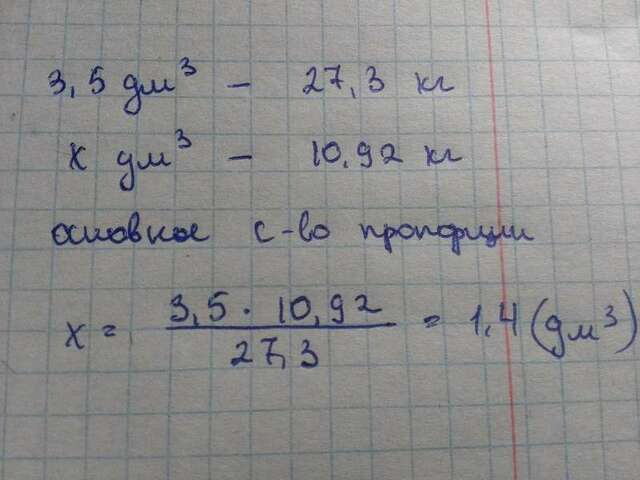 3,5 дм³ – 27,3 кг
х дм³ – 10,92 кг
основное с-во пропорции
х = 3,5 · 10,92 / 27,3 = 1,4 (дм³)